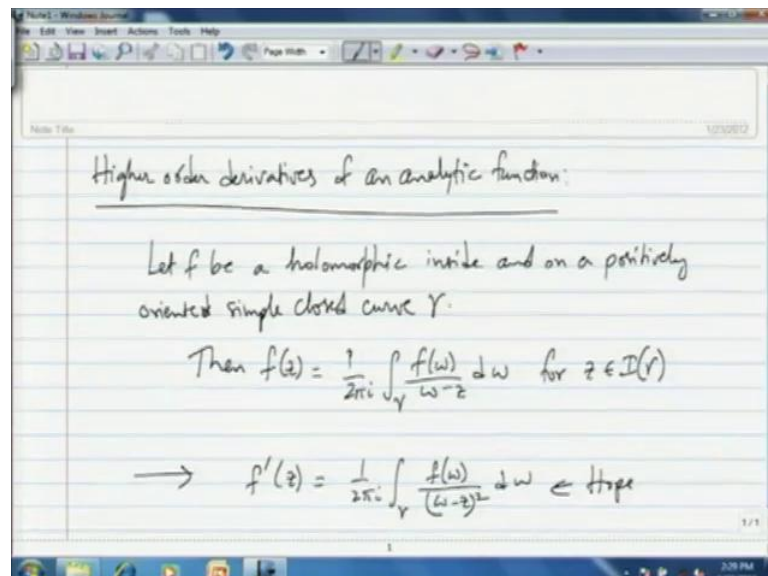 Note1 - Windows Journal
File Edit View Insert Actions Tools Help
Page Width
Note Title
1/23/2012
Higher order derivatives of an analytic function:
Let f be a holomorphic inside and on a positively
oriented simple closed curve γ.
Then f(z) = 1/2πi ∫_γ f(w)/(w-z) dw for z ∈ I(γ)
→ f'(z) = 1/2πi ∫_γ f(w)/(w-z)² dw ← Hope
1/1
1
2:29 PM